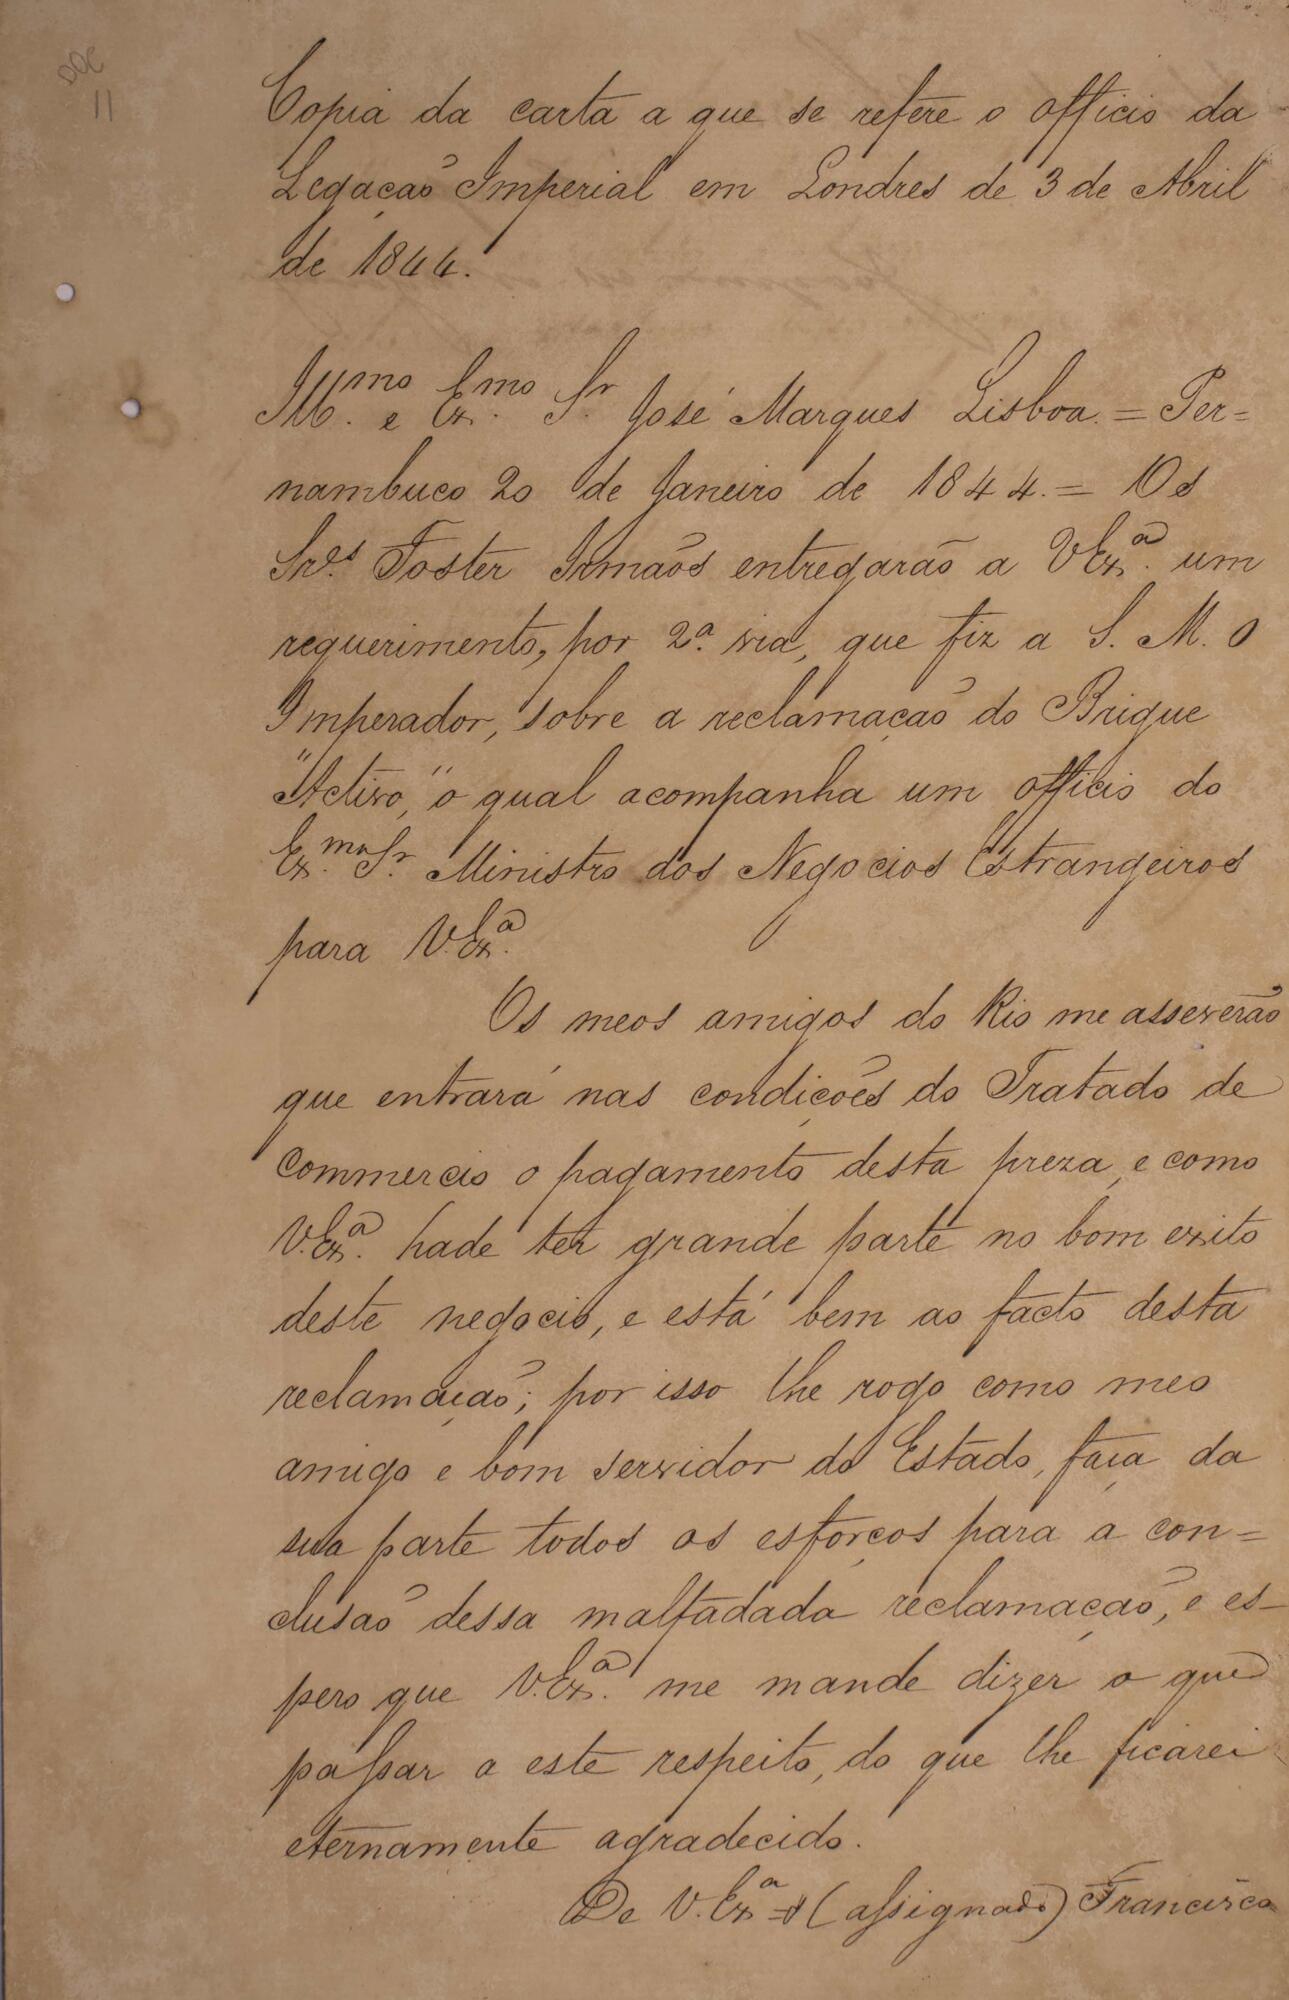 DOC
11
Copia da carta a que se refere o officio da
Legação Imperial em Londres de 3 de Abril
de 1844.
Ill.mo e Ex.mo Sr. José Marques Lisboa. = Per=
nambuco 20 de Janeiro de 1844. = Os
Snr.es Foster Irmãos entregarão a V.Ex.a um
requerimento, por 2.a via, que fiz a S. M. O
Imperador, sobre a reclamação do Brigue
"Activo," o qual acompanha um officio do
Ex.mo Sr. Ministro dos Negocios Estrangeiros
para V.Ex.a
Os meos amigos do Rio me asseverão
que entrará nas condições do Tratado de
Commercio o pagamento desta preza, e como
V.Ex.a hade ter grande parte no bom exito
deste negocio, e está bem ao facto desta
reclamação; por isso lhe rogo como meo
amigo e bom servidor do Estado, faça da
sua parte todos os esforços para a con=
clusão dessa malfadada reclamação, e es-
pero que V.Ex.a me mande dizer o que
passar a este respeito, do que lhe ficarei
eternamente agradecido.
De V. Ex.a = (assignado) Francisco